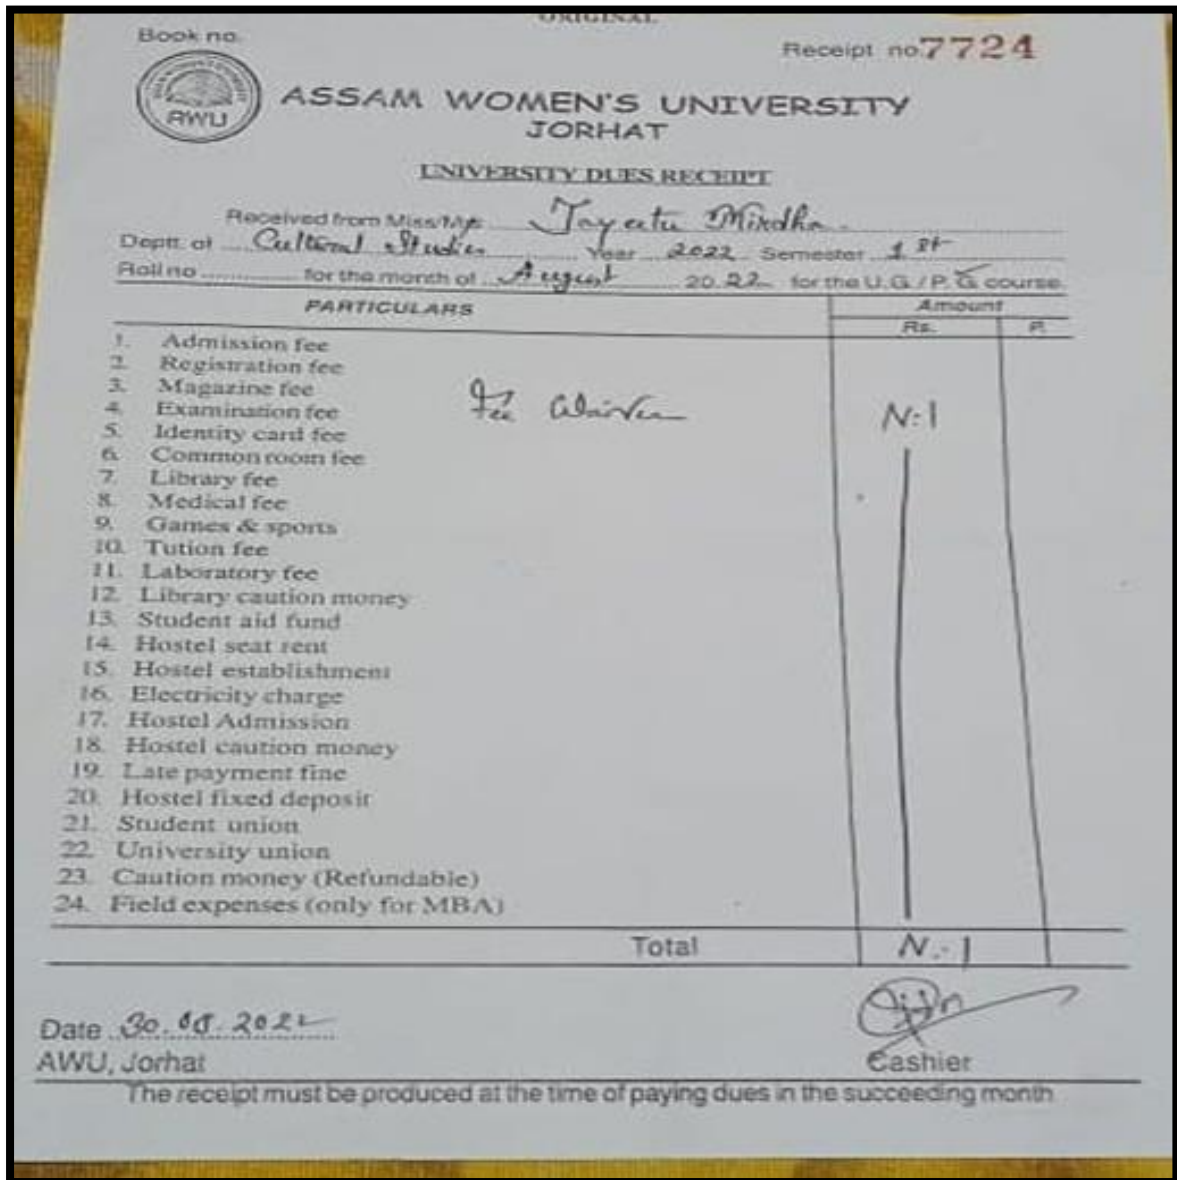 ORIGINAL
Book no.
Receipt no. 7724
AWU
ASSAM WOMEN'S UNIVERSITY
JORHAT
UNIVERSITY DUES RECEIPT
Received from Miss/Mr. Mirdha
Deptt. of Cultural Studies Year 2022 Semester 1st
Roll no for the month of August 2022 for the U.G./P.G course.
PARTICULARS Amount
Rs. P.
1. Admission fee
2. Registration fee
3. Magazine fee
4. Examination fee Fee Waiver N:l
5. Identity card fee
6. Common room fee
7. Library fee
8. Medical fee
9. Games & sports
10. Tution fee
11. Laboratory fee
12. Library caution money
13. Student aid fund
14. Hostel seat rent
15. Hostel establishment
16. Electricity charge
17. Hostel Admission
18. Hostel caution money
19. Late payment fine
20. Hostel fixed deposit
21. Student union
22. University union
23. Caution money (Refundable)
24. Field expenses (only for MBA)
Total Nil
Date 30. 2022
AWU, Jorhat Cashier
The receipt must be produced at the time of paying dues in the succeeding month